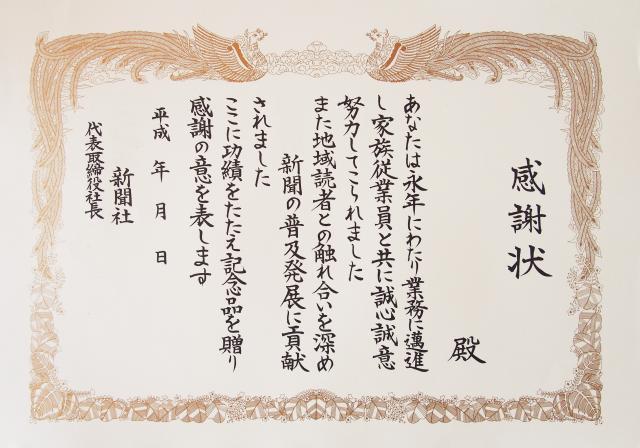 感謝状
殿
あなたは永年にわたり業務に邁進
し家族従業員と共に誠心誠意
努力してこられました
また地域読者との触れ合いを深め
新聞の普及発展に貢献
されました
ここに功績をたたえ記念品を贈り
感謝の意を表します
平成 年 月 日
新聞社
代表取締役社長